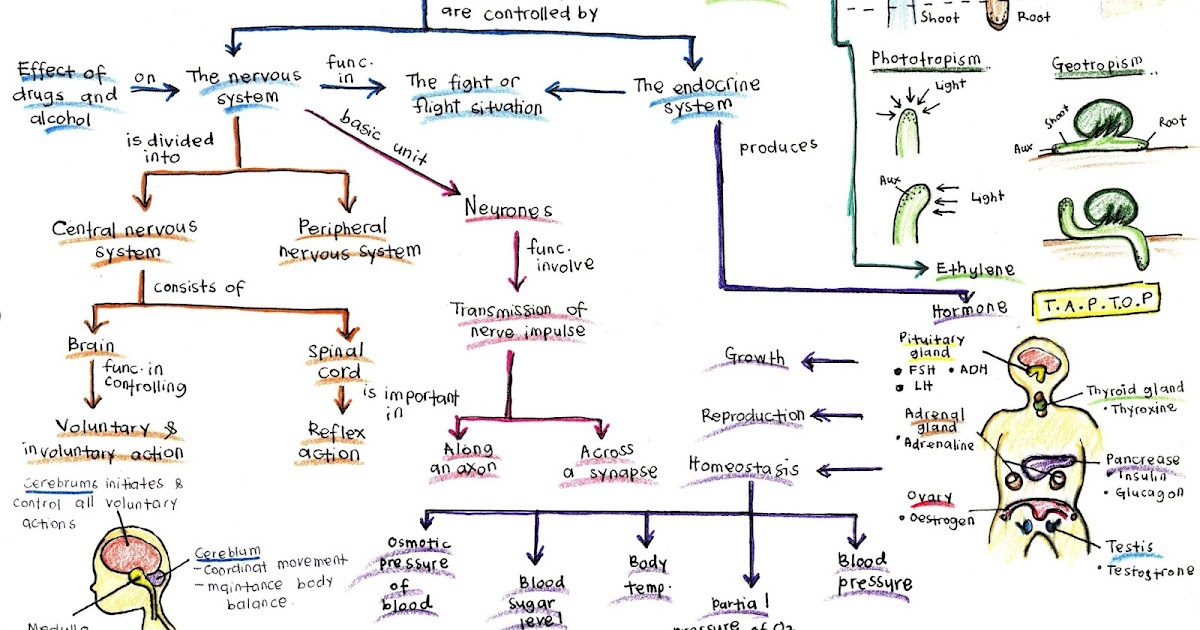 are controlled by
Shoot
Root
Effect of
drugs and
alcohol
on
The nervous
system
func.
in
The fight or
flight situation
The endocrine
system
Phototropism
Geotropism
Light
Shoot
Root
Aux
is divided
into
basic unit
produces
Aux
Light
Central nervous
system
Peripheral
nervous system
Neurones
func.
involve
Ethylene
consists of
Transmission of
nerve impulse
Hormone
T.A.P.T.O.P
Brain
func. in
controlling
Spinal
cord
is important
in
Growth
Pituitary
gland
• FSH • ADH
• LH
Thyroid gland
• Thyroxine
Voluntary &
involuntary action
Reflex
action
Along
an axon
Across
a synapse
Reproduction
Adrenal
gland
• Adrenaline
Homeostasis
Pancrease
• Insulin
• Glucagon
Cerebrums initiates &
control all voluntary
actions
Ovary
• Oestrogen
Cereblum
- Coordinat movement
- maintance body
balance.
Osmotic
pressure
of
blood
Blood
sugar
level
Body
temp.
Partial
pressure of O2
Blood
pressure
Testis
• Testostrone
Medulla